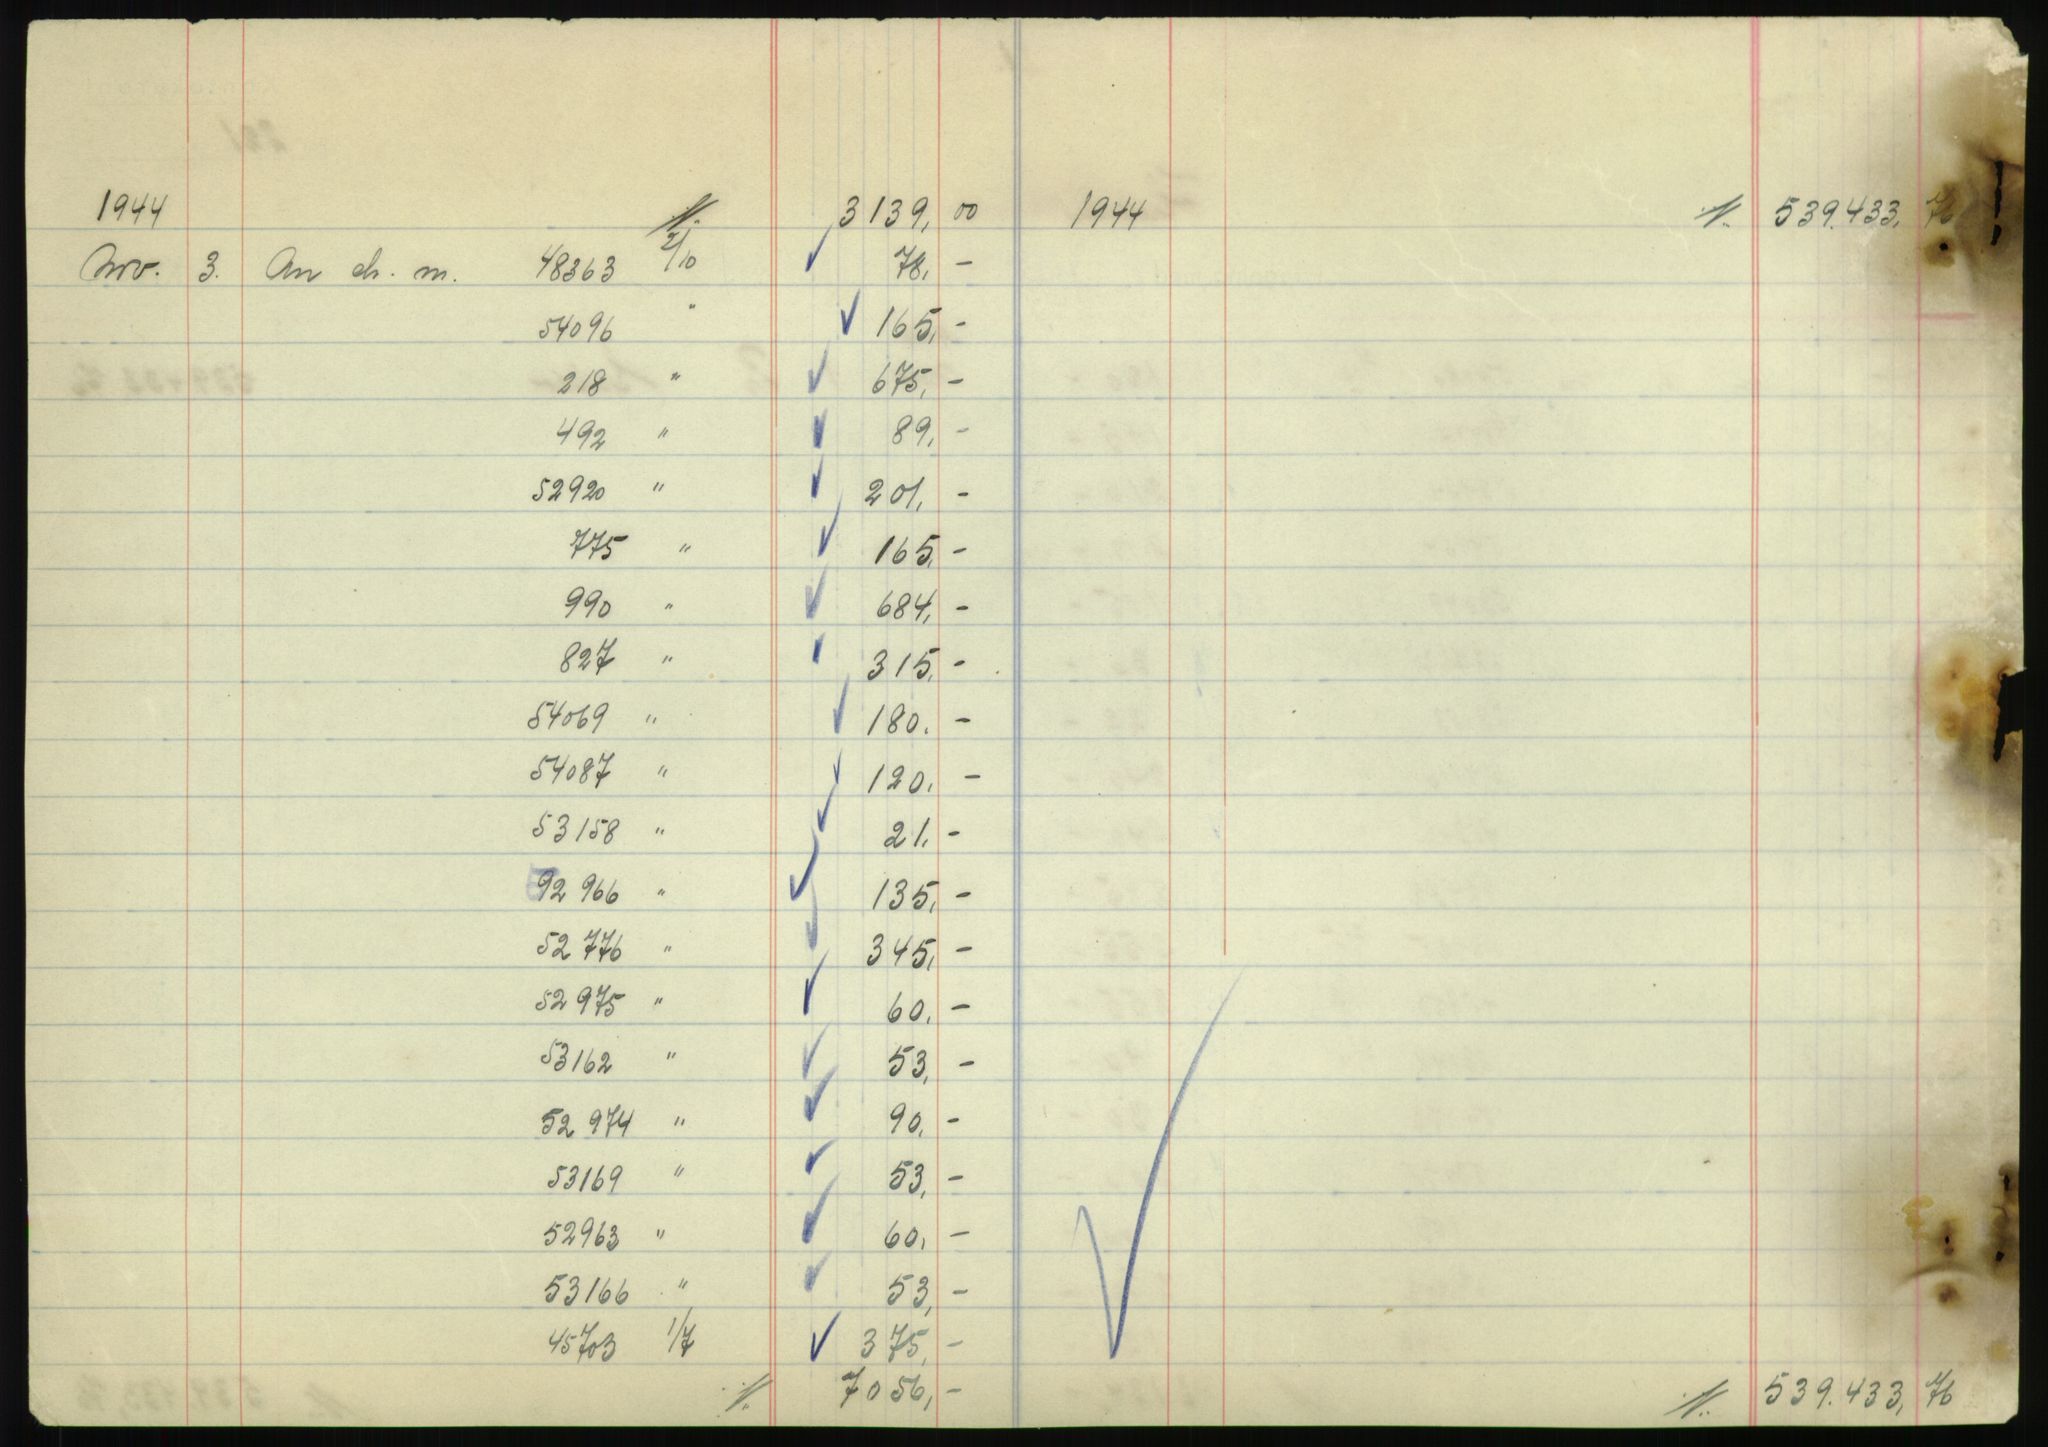 1944 ./. 3139,00 1944 ./. 539.433,76
Nov. 3. An ch. m. 48363 2/10 78,-
54096 " 165,-
218 " 675,-
492 " 89,-
52920 " 201,-
775 " 165,-
990 " 684,-
827 " 315,-
54069 " 180,-
54087 " 120,-
53158 " 21,-
92966 " 135,-
52776 " 345,-
52975 " 60,-
53162 " 53,-
52974 " 90,-
53169 " 53,-
52963 " 60,-
53166 " 53,-
45703 1/7 375,-
./. 7056,- ./. 539.433,76